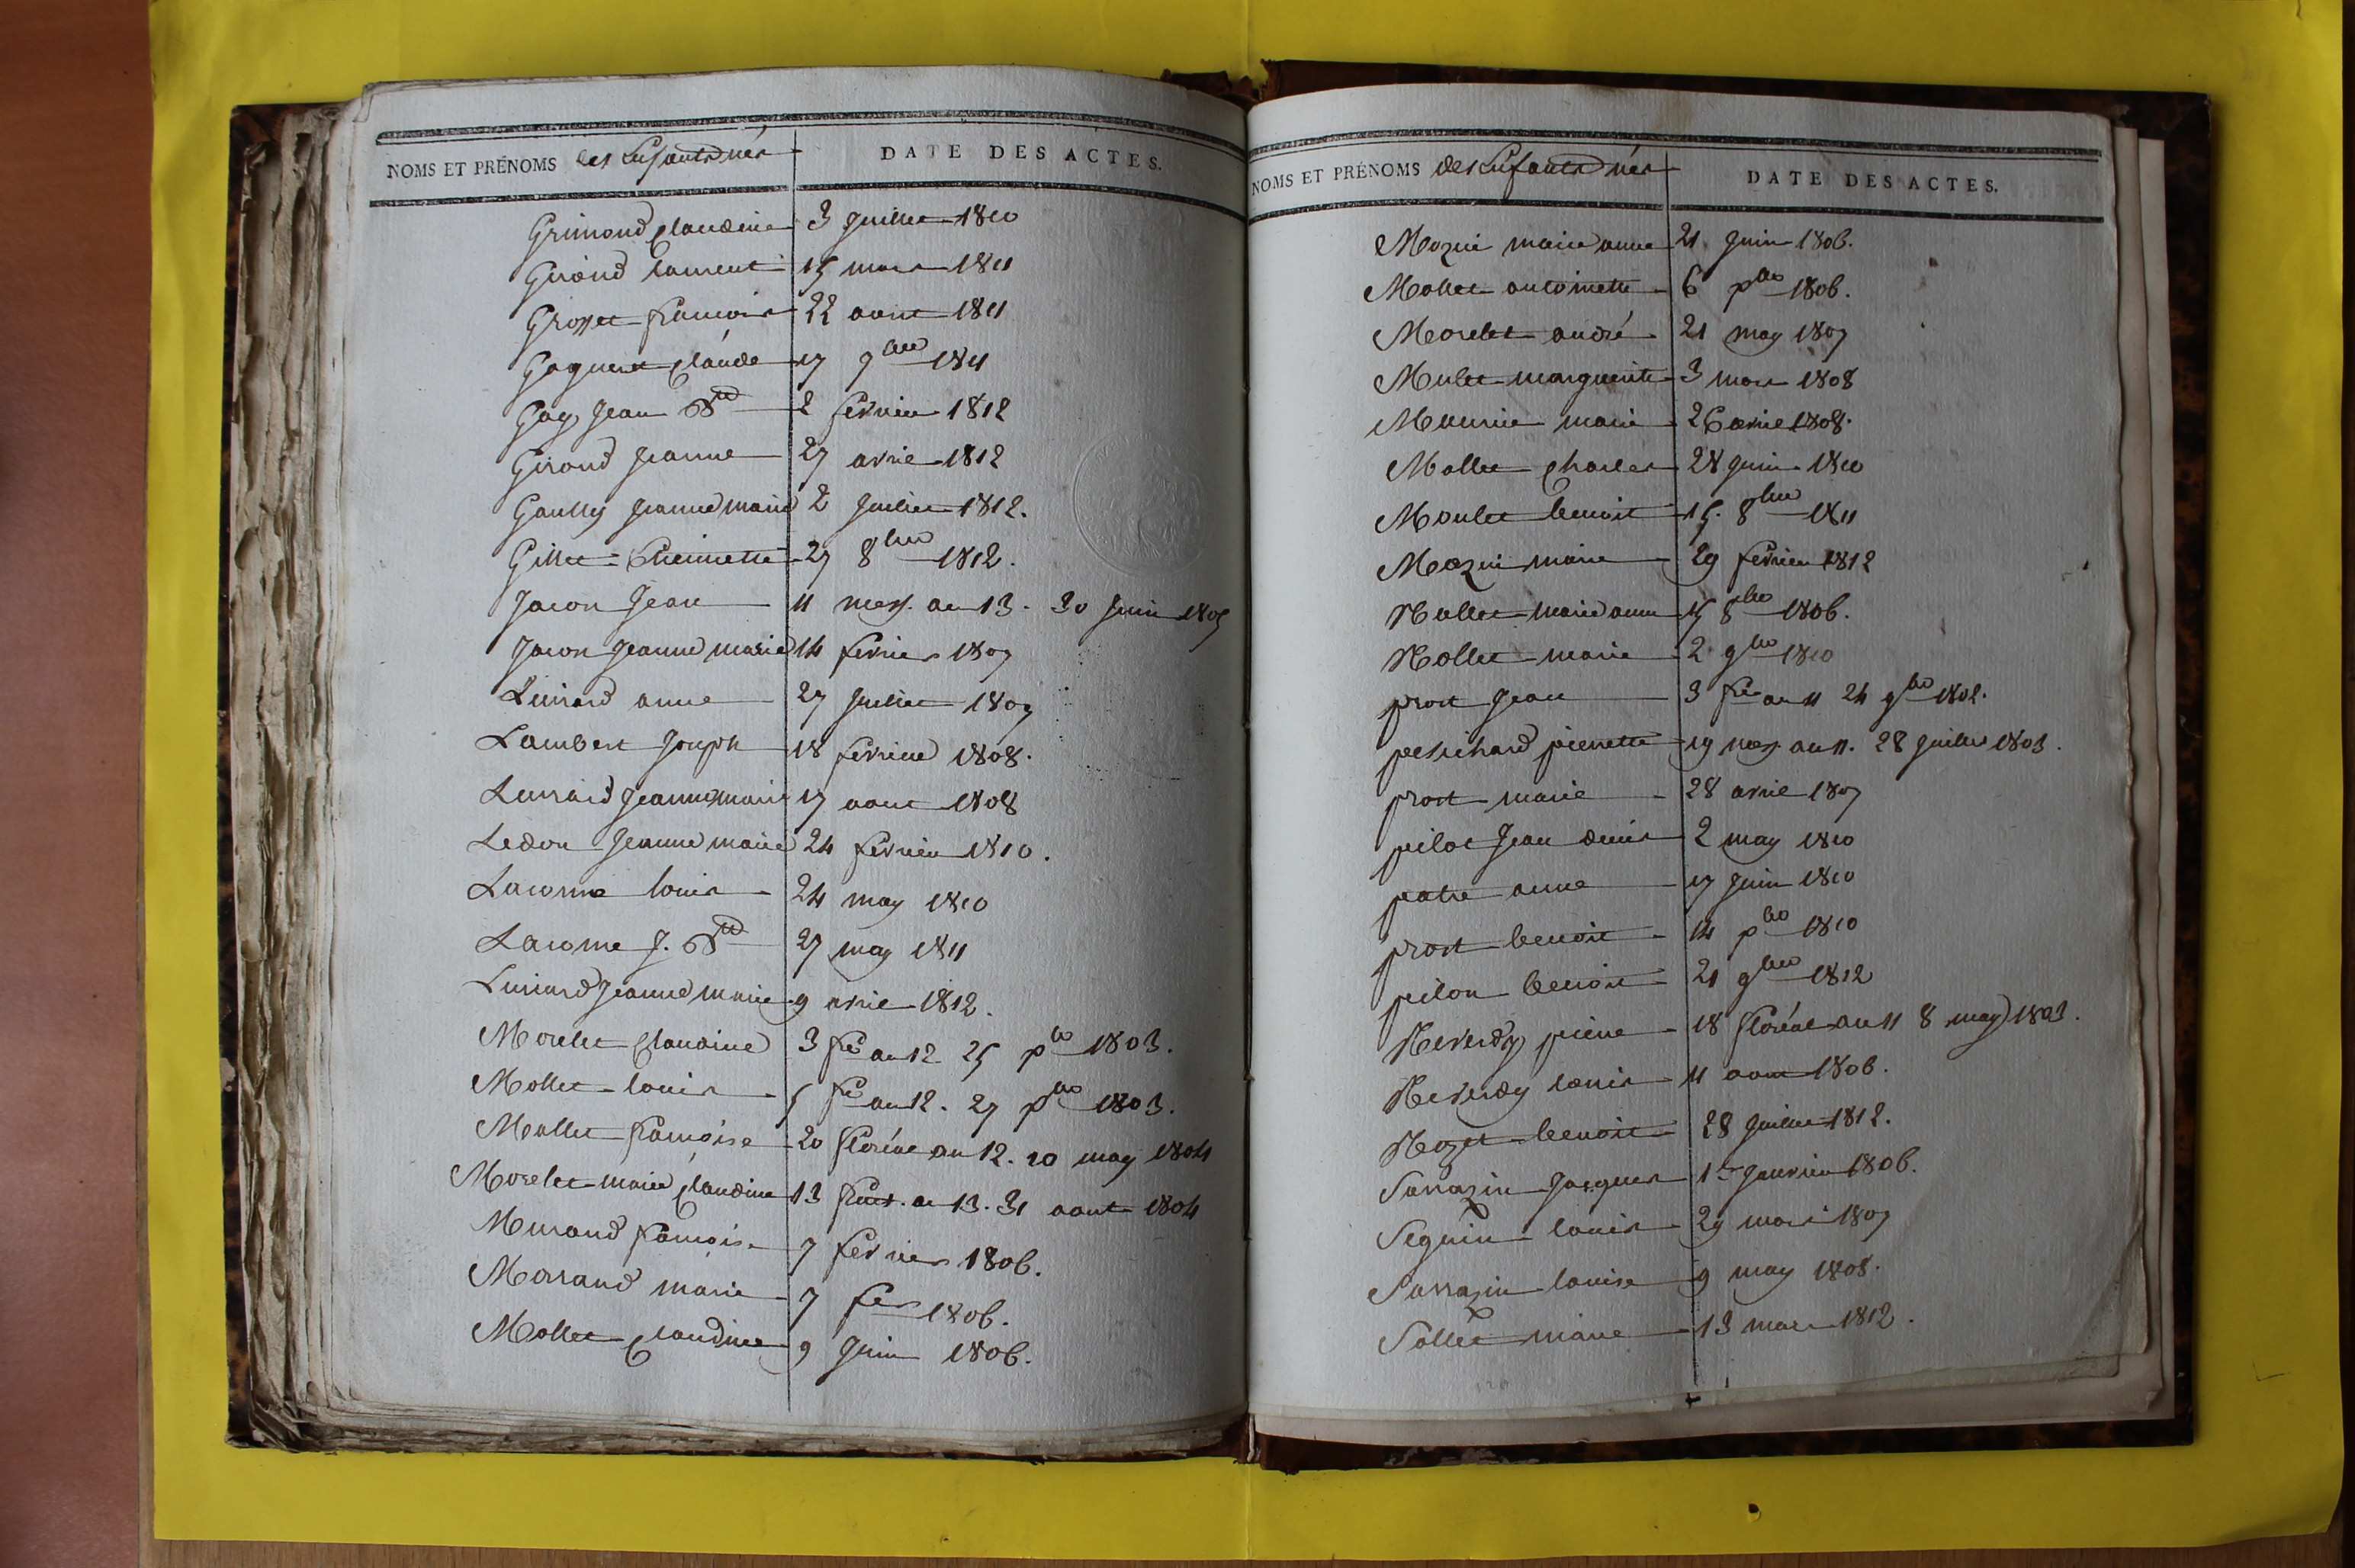 NOMS ET PRÉNOMS des Enfants nés
DATE DES ACTES.
Grimond Claudine 3 Juillet 1810
Girond laurent 15 mars 1811
Grosset francois 22 aout 1811
Gaguere Claude 17 9bre 1811
Gay Jean Bte 2 fevrier 1812
Girond Jeanne 27 avril 1812
Gaully Jeanne marie 2 Juillet 1812.
Gillet Etiennette 27 8bre 1812.
Jacon Jean 11 mess. an 13. 30 Juin 1805
Jacon Jeanne marie 14 fevrier 1807
anne 27 Juillet 1807
Lambert Joseph 18 fevrier 1808.
Jeanne marie 17 aout 1808
Ledon Jeanne marie 24 fevrier 1810.
Lacome louis 24 may 1810
Lacome J. Bte 27 may 1811
Jeanne marie 9 avril 1812.
Morelet Claudine 3 fre an 12 25 1803.
Mollet louis 5 fre an 12. 27 1803.
Mollet francoise 20 floréal an 12. 10 may 1804
Morelet marie Claudine 13 fruct. an 13. 31 aout 1804
francoise 7 fevrier 1806.
marie 7 fer 1806.
Mollet Claudine 9 Juin 1806.
NOMS ET PRÉNOMS des Enfants nés
DATE DES ACTES.
Mazui marie anne 21 Juin 1806.
Mollet antoinette 6 1806.
Morelet andré 21 may 1807
Mulet marguerite 3 mars 1808
marie 26 avril 1808.
Mollet Charles 28 Juin 1810
Moulet benoit 15. 8bre 1811
Mazui marie 29 fevrier 1812
Nollet marie anne 15 8bre 1806.
Nollet marie 2 9bre 1810
prost Jean 3 fre an 11 24 9bre 1802.
pierrette 19 mess. an 11. 28 Juillet 1803.
prost marie 28 avril 1807
pilot Jean denis 2 may 1810
patre anne 17 Juin 1810
prost benoit 14 1810
pilon benoit 21 9bre 1812
Reverdy pierre 18 floréal an 11 8 may 1803.
Reverdy louis 11 aout 1806.
Rozet benoit 28 Juillet 1812.
Sarrazin Jacques 1er Janvier 1806.
Seguin louis 29 mars 1807
Sarrazin louise 9 may 1808.
Sollet marie 13 mars 1812.